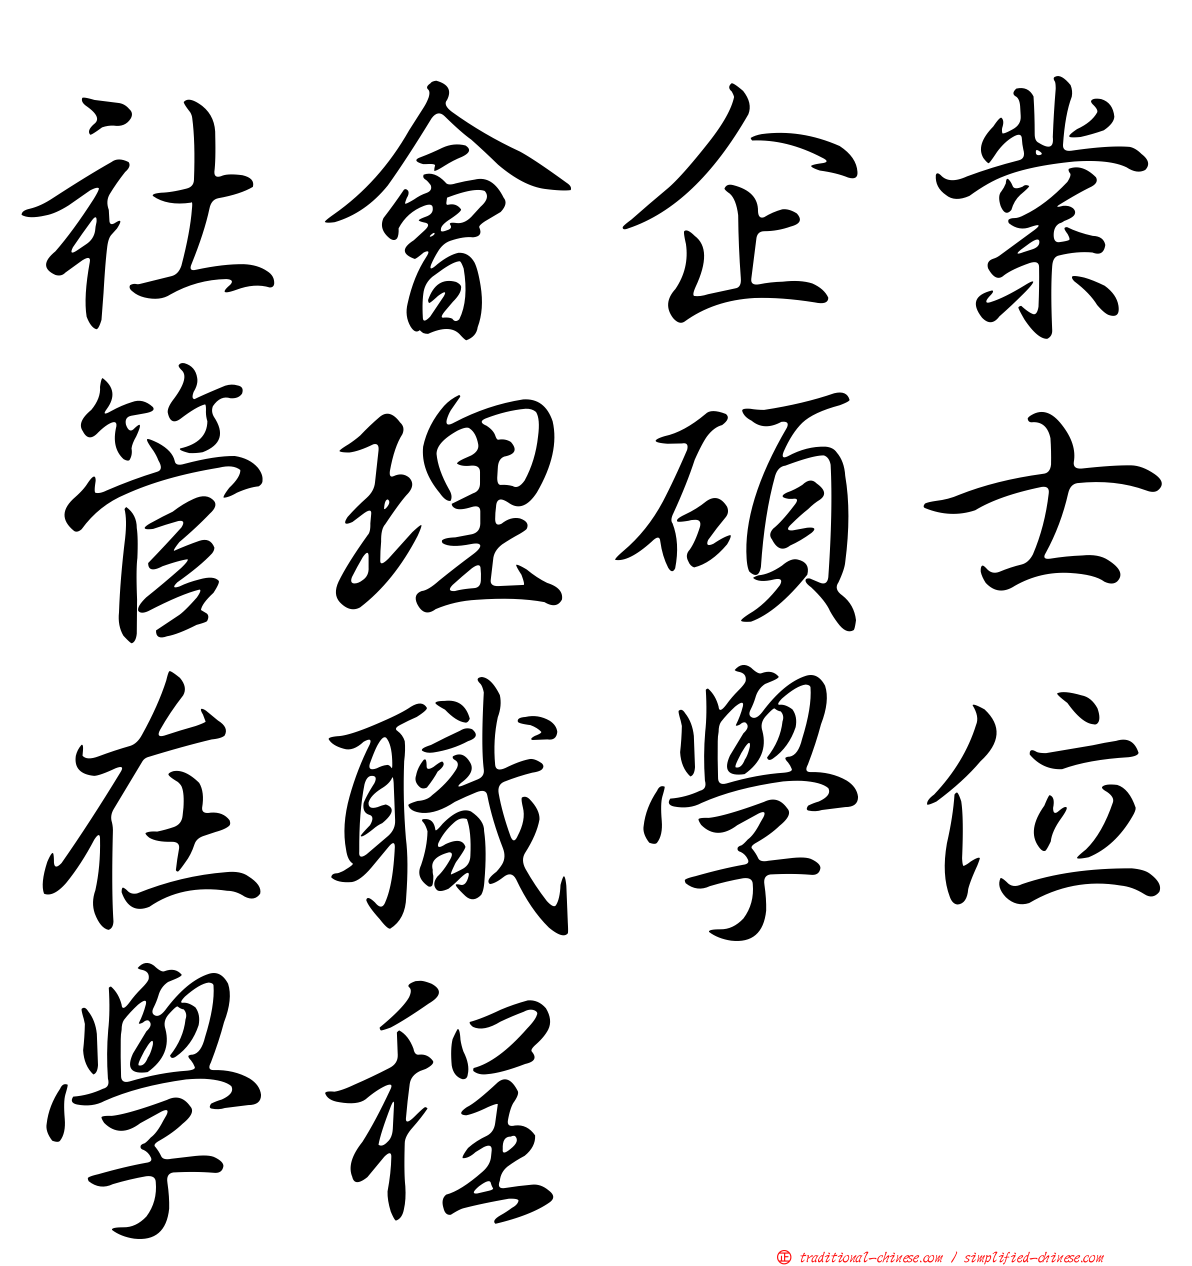 社會企業
管理碩士
在職學位
學程
正 traditional-chinese.com / simplified-chinese.com